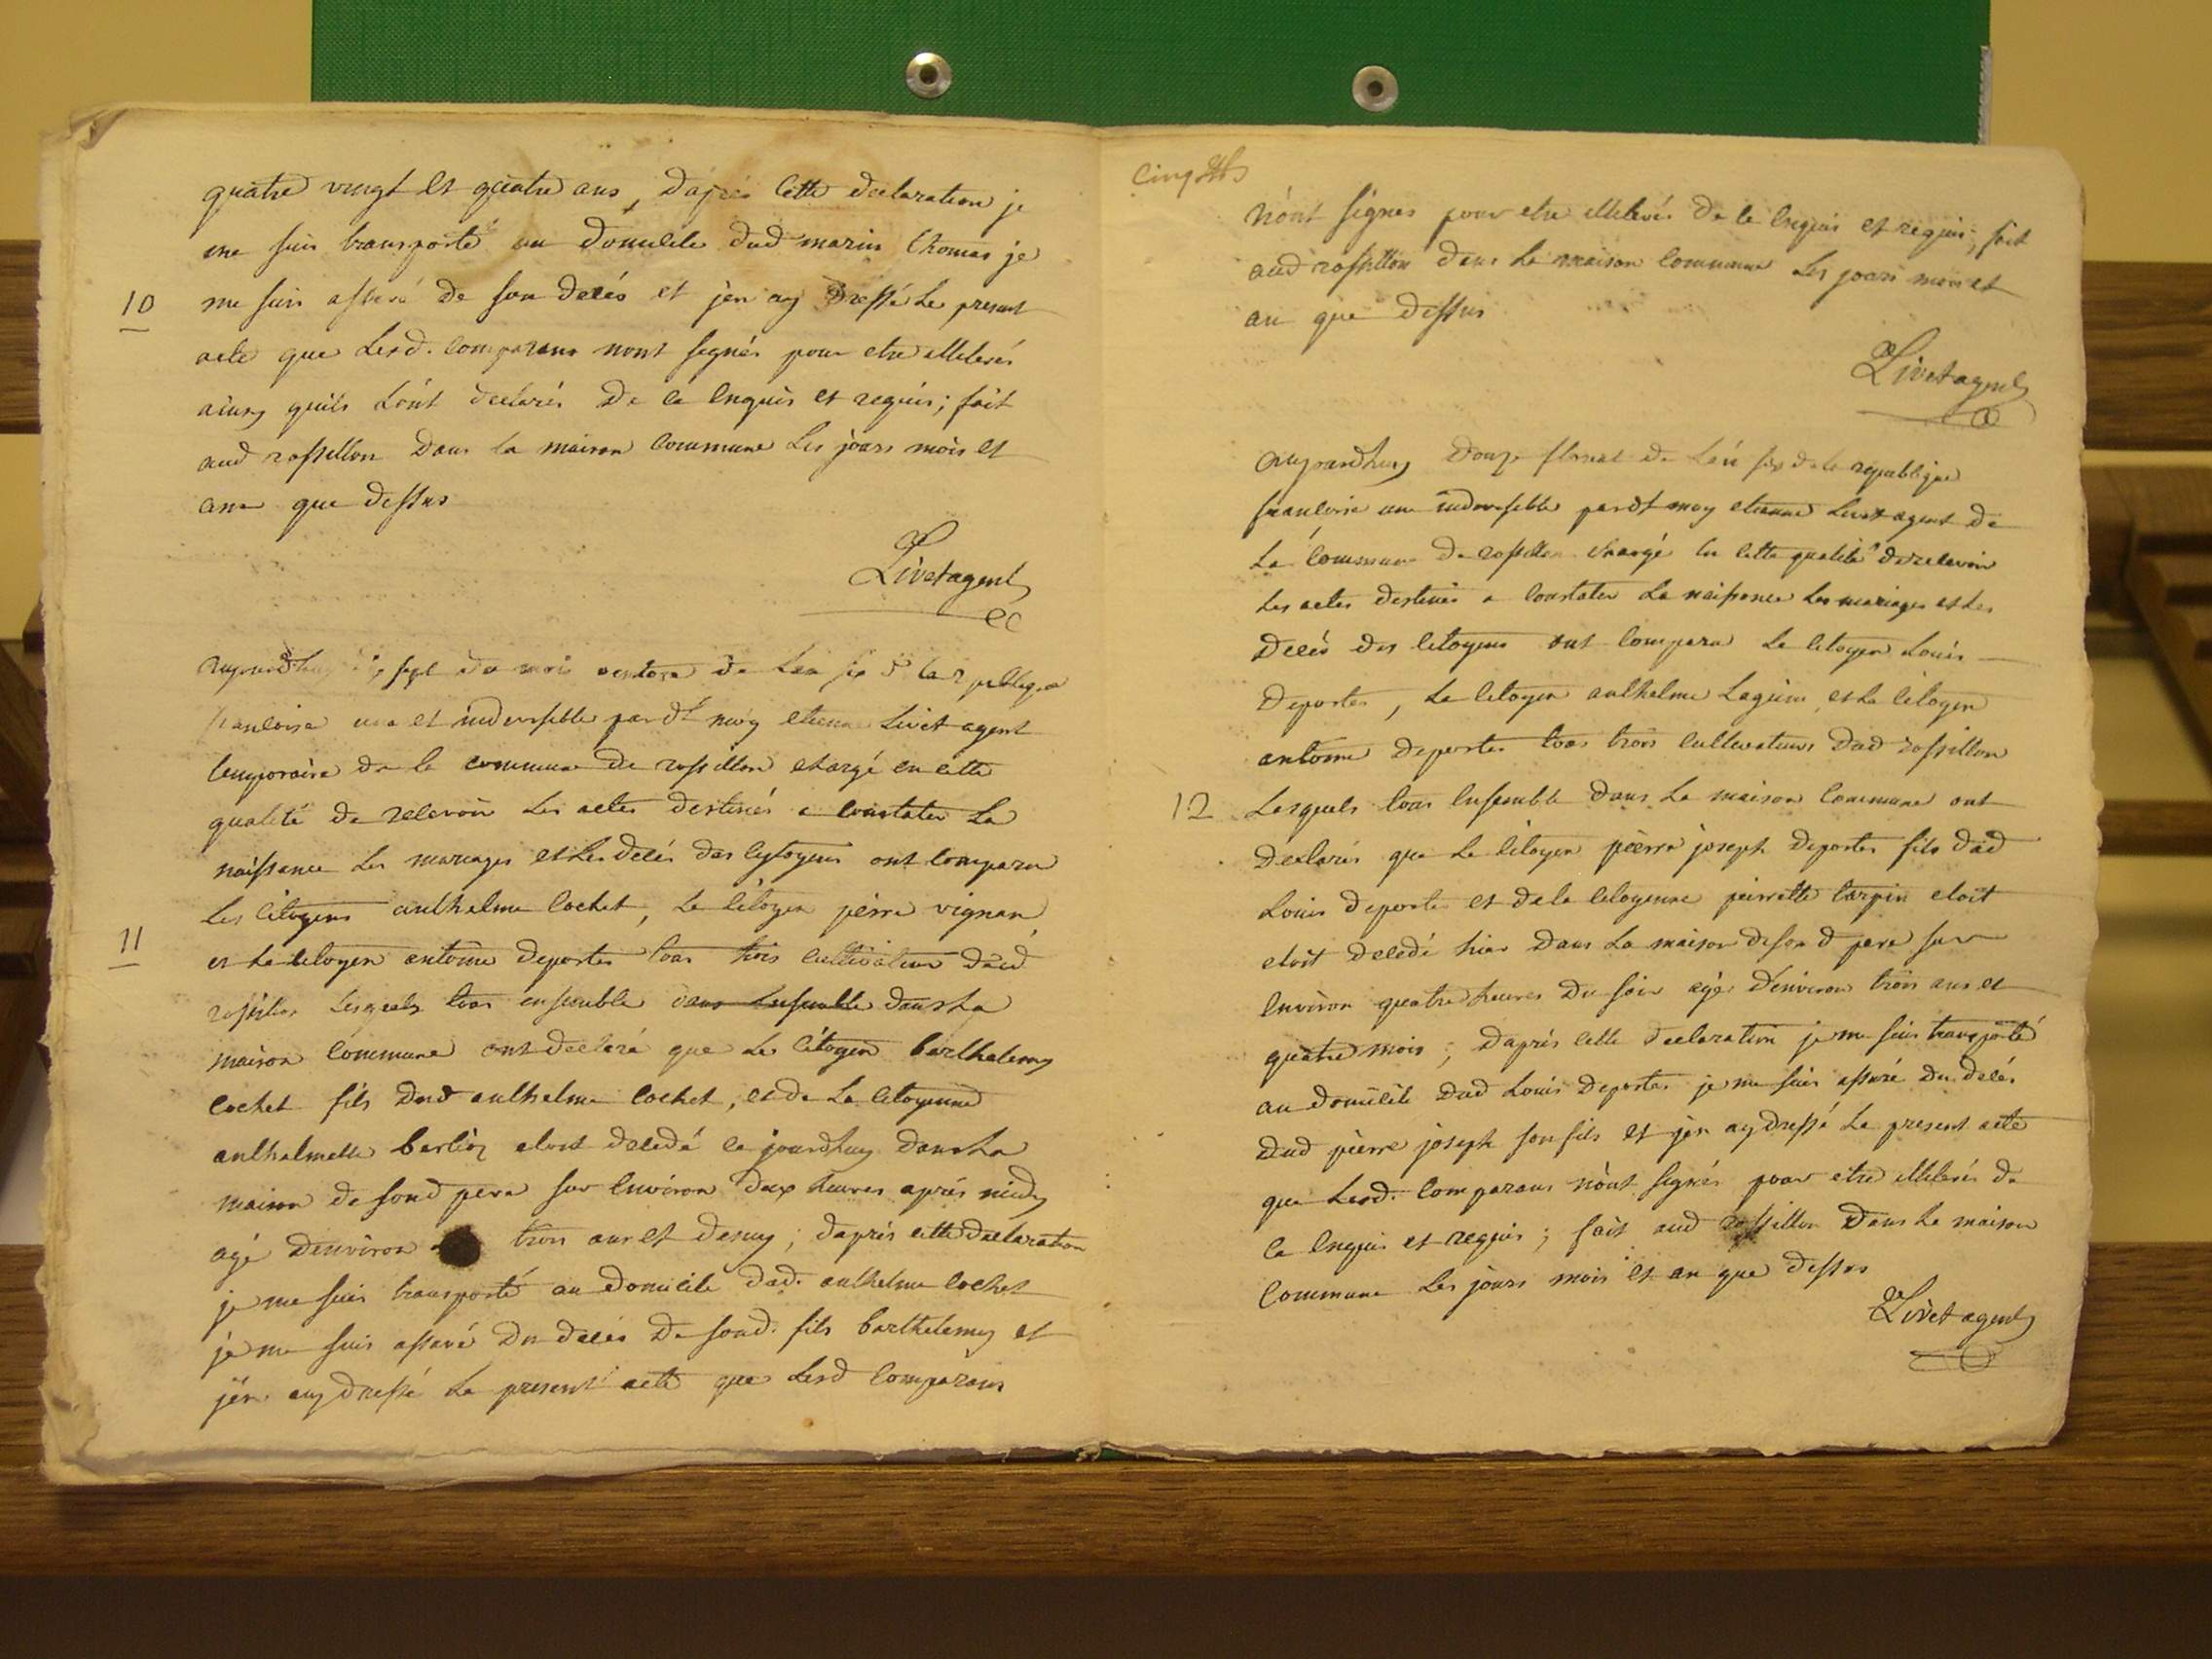 quatre vingt et quatre ans, daprés cette declaration je
me suis transporté au domicile dud marin thomas je
10 me suis assuré de son decés et jen ay dressé le present
acte que lesd. comparans nont signés pour etre illeterés
ainsy quils lont declarés de ce enquis et requis; fait
aud rossillon dans la maison commune les jours mois et
an que dessus
Livet agent
aujourdhuy sept du mois ventose de lan six de la republique
francoise une et indivisible pardt moy etienne Livet agent
temporaire de la commune de rossillon chargé en cette
qualité de recevoir les actes destinés a constater la
naissance les mariages et les decés des cytoyens ont comparu
les citoyens anthelme cochet, le citoyen pierre vignan
11 et le citoyen antoine deportes tous trois cultivateurs dud
rossillon lesquels tous ensemble dans ensemble dans la
maison commune ont declaré que le citoyen barthelemy
cochet fils dud anthelme cochet, et de la citoyenne
anthelmette berlioz etoit decedé ce jourdhuy dans la
maison de sond pere sur environ deux heures aprés midy
agé denviron trois ans et demy; daprés cette declaration
je me suis transporté au domicile dud. anthelme cochet
je me suis assuré du decés de sond. fils barthelemy et
jen ay dressé le present acte que lesd comparans
cinq
nont signes pour etre illeterés de ce enquis et requis; fait
aud rossillon dans la maison commune les jours mois et
an que dessus
Livet agent
aujourdhuy douze floreal de lan six de la republique
francoise une indivisible pardt moy etienne Livet agent de
la commune de rossillon chargé en cette qualité de recevoir
les actes destinés a constater la naissance les mariages et les
decés des citoyens ont comparu le citoyen Louis
deportes, le citoyen anthelme et le citoyen
antoine deportes tous trois cultivateurs dud rossillon
12 Lesquels tous ensemble dans la maison commune ont
declarés que le citoyen pierre joseph deportes fils dud
Louis deportes et de la citoyenne pierrette carpin etoit
etoit decedé hier dans la maison de son d pere sur
environ quatre heures du soir agé denviron trois ans et
quatre mois; daprés cette declaration je me suis transporté
au domicile dud Louis deportes je me suis assuré du decés
dud pierre joseph son fils et jen ay dressé le present acte
que lesd. comparans nont signés pour etre illeterés de
ce enquis et requis; fait aud rossillon dans la maison
commune les jours mois et an que dessus
Livet agent